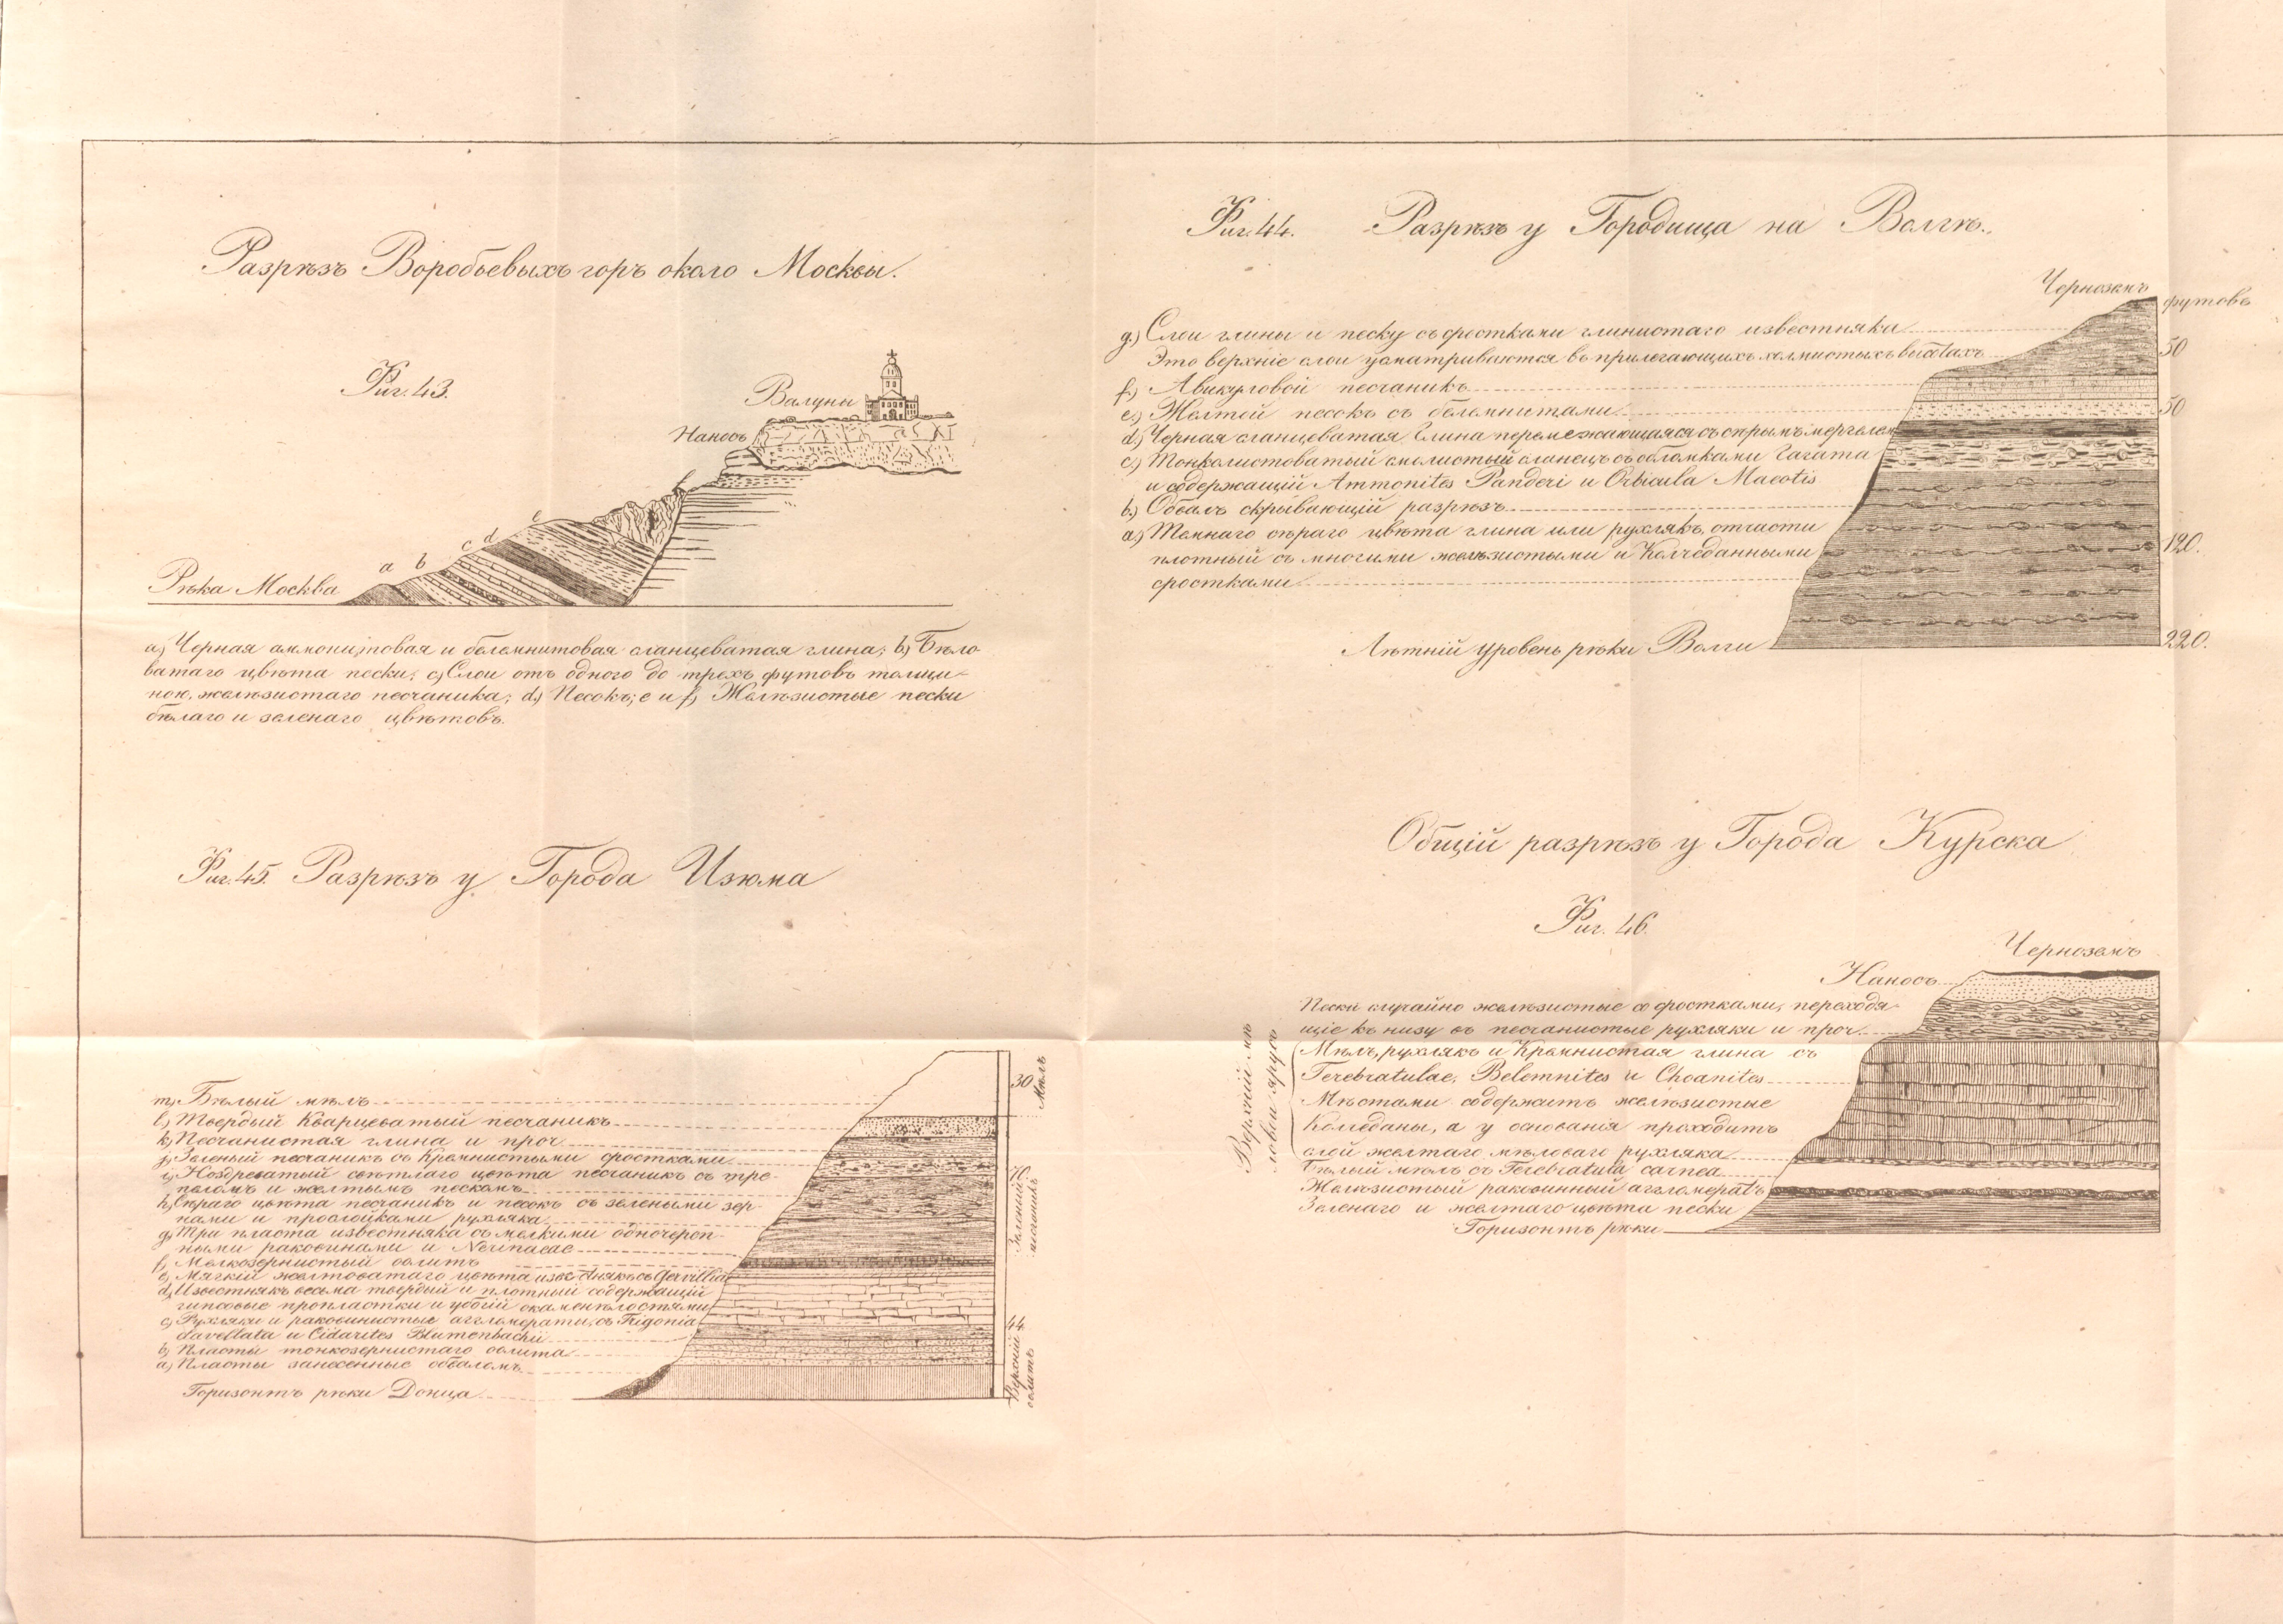 Разрѣзъ Воробьевыхъ горъ около Москвы.
Фиг. 43.
Валуны
Наносъ
f
e
d
c
b
a
Рѣка Москва
a) Черная аммонитовая и белемнитовая сланцеватая глина; b) Бѣло
ватаго цвѣта пески; c) Слои отъ одного до трехъ футовъ толщи-
ною, желѣзистаго песчаника; d) Песокъ; e и f) Желѣзистые пески
бѣлаго и зеленаго цвѣтовъ.
Фиг. 44. Разрѣзъ у Городища на Волгѣ.
Черноземъ
футовъ
g) Слои глины и песку съ сростками глинистаго известняка
Это верхніе слои усматриваются въ прилегающихъ холмистыхъ высотахъ
50
f.) Авикуловой песчаникъ
e) Желтой песокъ съ белемнитами
50
d) Черная сланцеватая глина перемежающаяся съ сѣрымъ мергелем
c) Тонколистоватый смолистый сланецъ съ обломками Гагата
и содержащій Ammonites Panderi и Orbicula Maeotis
b.) Обвалъ скрывающій разрѣзъ
a) Темнаго сѣраго цвѣта глина или рухлякъ, отчасти
плотный съ многими желѣзистыми и Колчеданными
120.
сростками
Лѣтній уровень рѣки Волги
220.
Фиг. 45. Разрѣзъ у Города Изюма
m) Бѣлый мѣлъ
l) Твердый Кварцеватый песчаникъ
k) Песчанистая глина и проч.
j) Зеленый песчаникъ съ Кремнистыми сростками
i) Ноздреватый свѣтлаго цвѣта песчаникъ съ тре-
пеломъ и желтымъ пескомъ
h) Сѣраго цвѣта песчаникъ и песокъ съ зелеными зер-
нами и прослойками рухляка
g) Три пласта известняка съ мелкими одночереп-
ными раковинами и Nerinaeae
f) Мелкозернистый оолитъ
e) Мягкій желтоватаго цвѣта известнякъ съ Gervillia
d) Известнякъ весьма твердый и плотный содержащій
гипсовые пропластки и убогій окаменѣлостями
c) Рухляки и раковинистые аггломераты, съ Trigonia
clavellata и Cidarites Blumenbachii
b) Пласты тонкозернистаго оолита
a) Пласты занесенные обваломъ
Горизонтъ рѣки Донца
30
Мѣлъ
Зеленый
песчаникъ
44
Верхній
оолитъ
Общій разрѣзъ у Города Курска
Фиг. 46.
Черноземъ
Наносъ
Пески случайно желѣзистые со сростками, переходя-
щіе къ низу въ песчанистые рухляки и проч.
Верхній мѣ
ловой ярусъ
Мѣлъ, рухлякъ и Кремнистая глина съ
Terebratulae, Belemnites и Choanites
Мѣстами содержитъ желѣзистые
Колчеданы, а у основанія проходитъ
слой желтаго мѣловаго рухляка
Бѣлый мѣлъ съ Terebratula carnea
Желѣзистый раковинный аггломератъ
Зеленаго и желтаго цвѣта пески
Горизонтъ рѣки